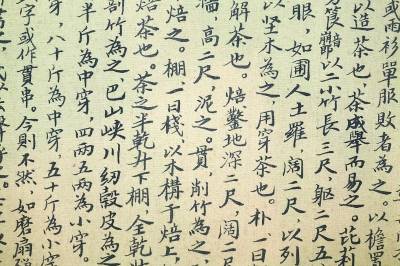 或雨衫單服敗者為之。以檐置
以造茶也。茶成舉而易之。芘莉
筤以二小竹長三尺，軀二尺五
眼，如圃人土羅，闊二尺，以列
以坚木為之，用穿茶也。朴，一曰
解茶也。焙鑿地深二尺，闊二
墻，高二尺，泥之。貫，削竹為之，
焙之。棚一曰棧，以木構于焙上，
焙茶也。茶之半乾升下棚，全乾
剖竹為之，巴山峡川紉穀皮為之
半斤為中穿，四兩五兩為小穿。
字，八十斤為中穿，五十斤為小穿。
字或作貫串。今則不然，如磨扇